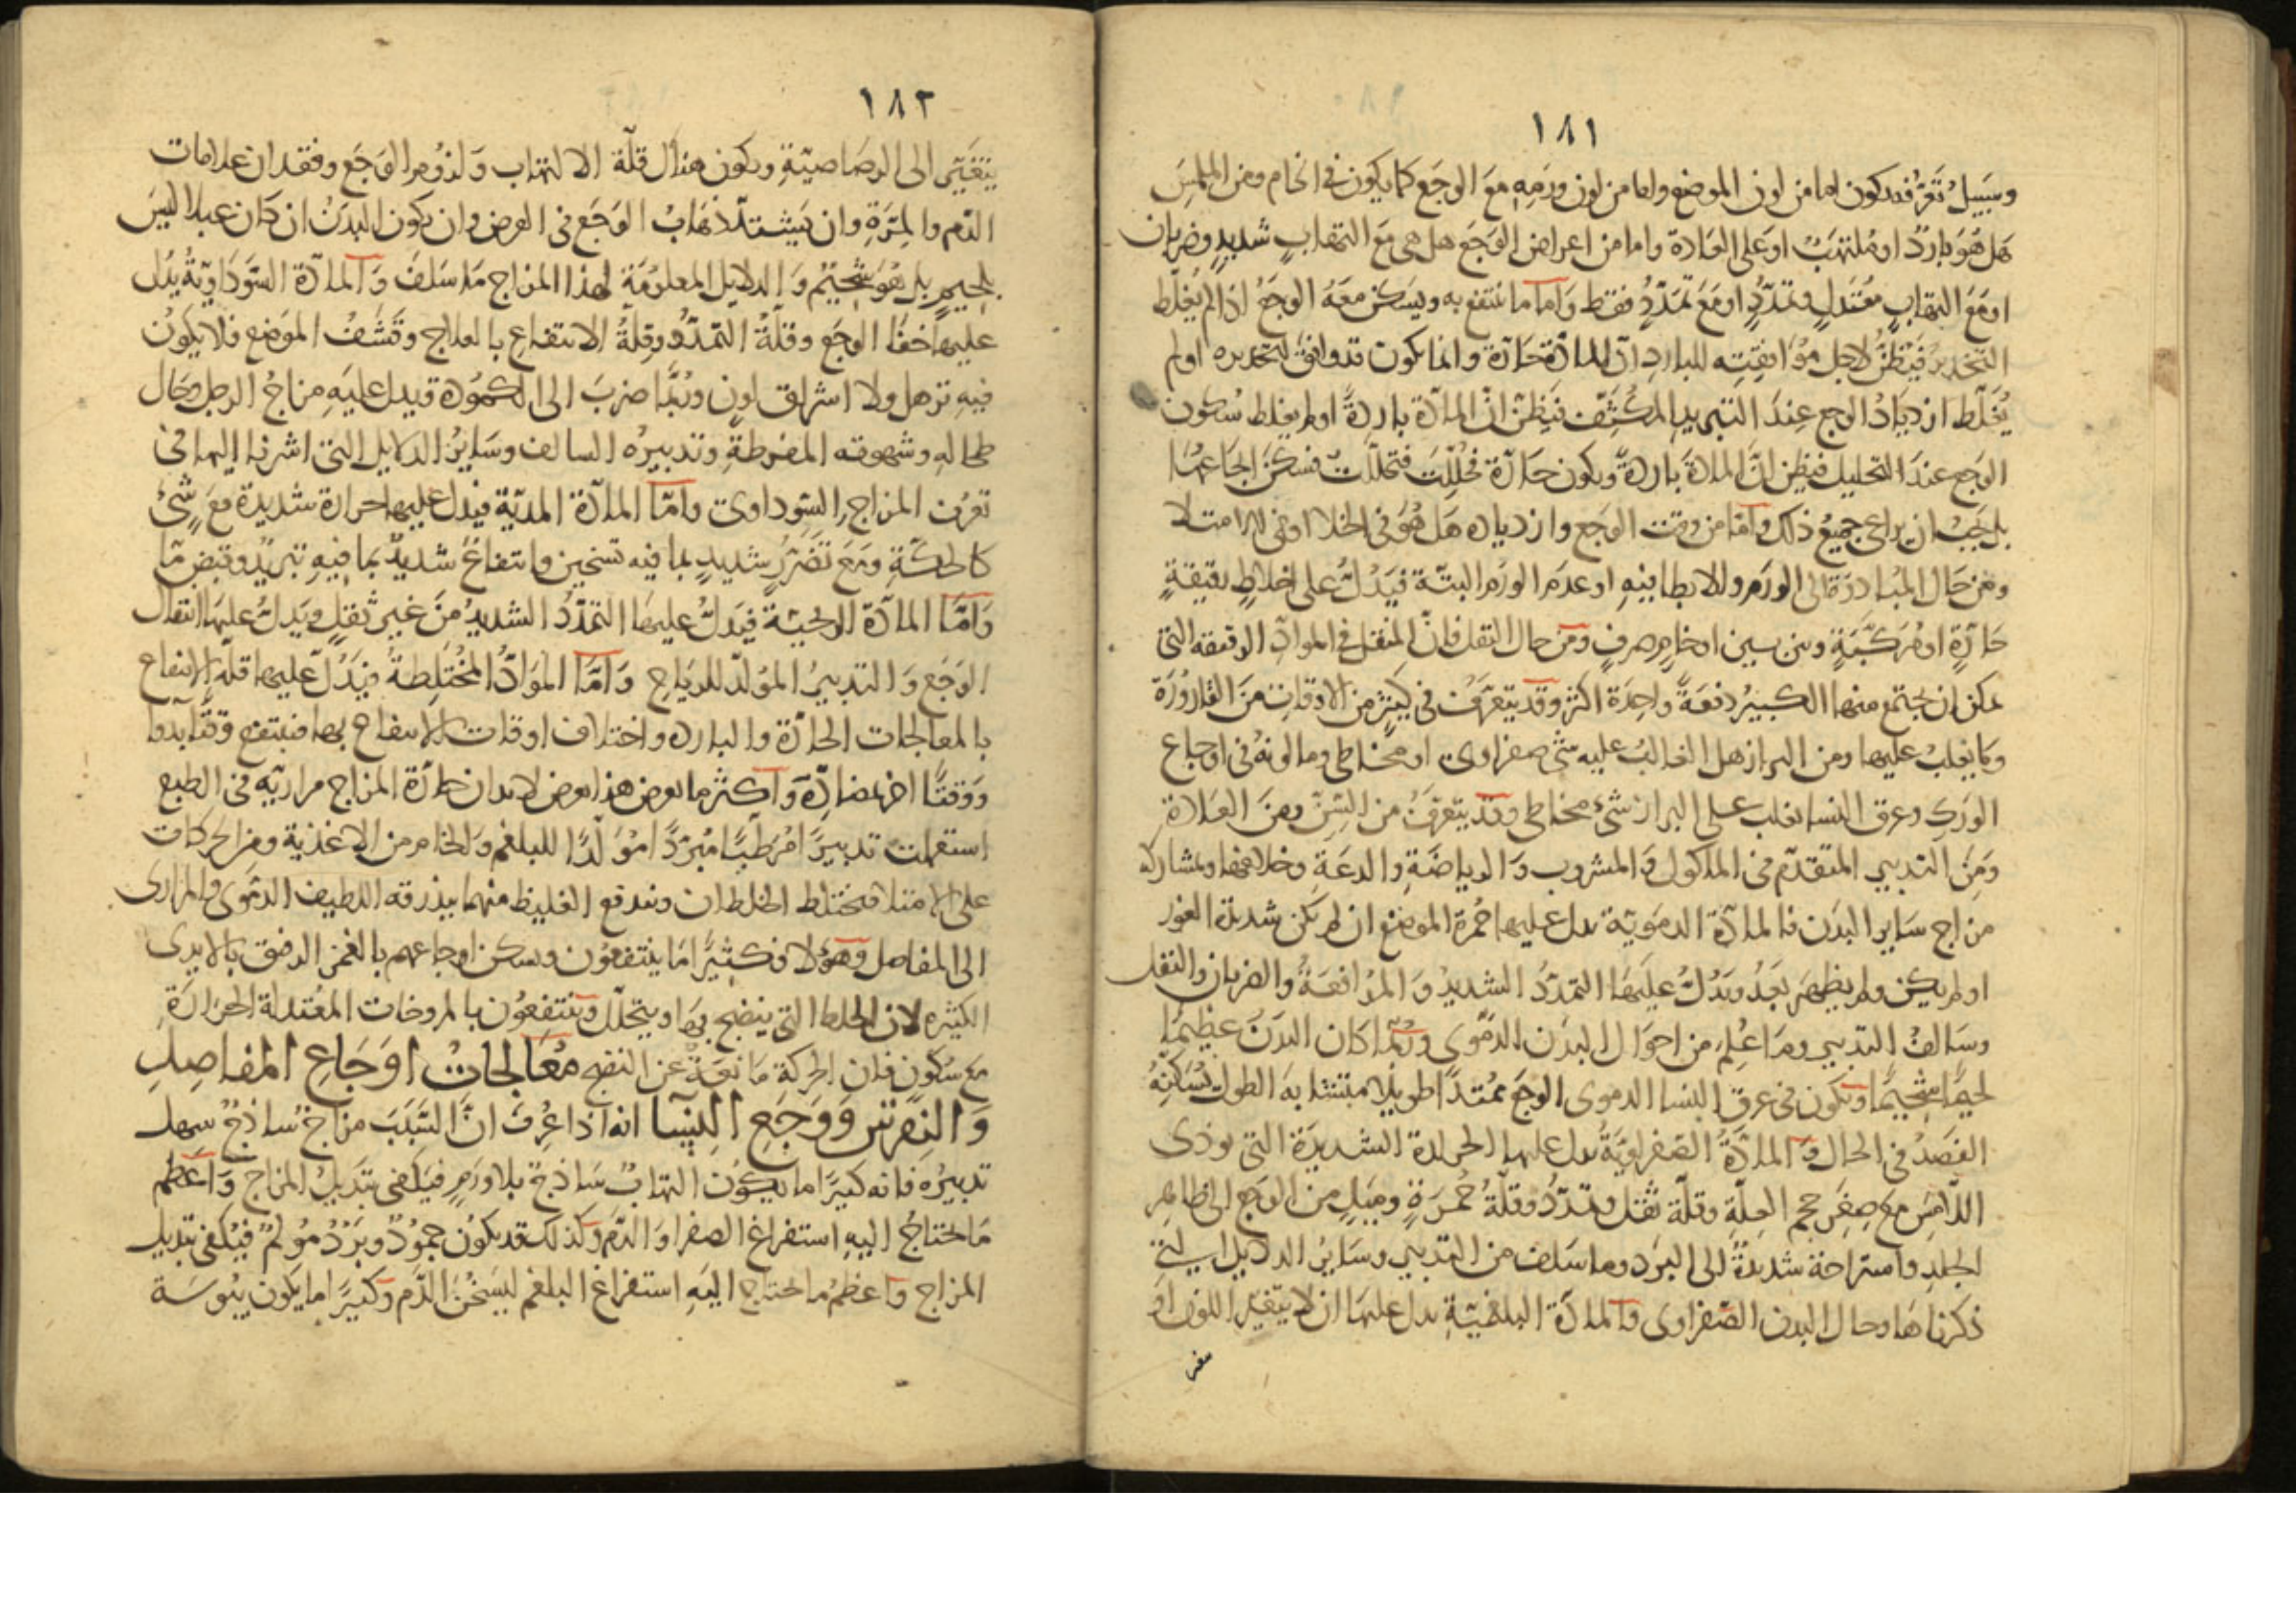 ١٨١
وسبيل تعرفه يكون اما من لون الموضع واما من لون ورمه مع الوجع كما يكون في الخام ومن الملمس
هل هو بارد او ملتهب او على العادة واما من اعراض الوجع هل هي مع التهاب شديد وضربان
او مع التهاب معتدل وتمدد او مع تمدد فقط واما ما ينتفع به ويسكن معه الوجع اذا لم يغلط
التخدير فيظن لاجل موافقته للبارد ان المادة حارة وانما يكون قد وافق لتخديره او لم
يغلط ازدياد الوجع عند التبريد المكثف فيظن ان المادة باردة او لم يغلط سكون
الوجع عند التحليل فيظن ان المادة باردة ويكون حارة فحللت فتحللت فسكن ايجاعها
بل يجب ان يراعى جميع ذلك واما من وقت الوجع وازدياده هل هو في الخلا او في الامتلا
ومن حال المبادرة الى الورم والابطا فيه او عدم الورم البتة فيدل على اخلاط رقيقة
حارة او مركبة وبين بين او خام صرف ومن حال الثقل فان الثقل في المواد الرقيقة التي
يمكن ان يجتمع منها الكبير دفعة واحدة اكثر وقد يتعرف في كثير من الاوقات من القارورة
وما يغلب عليها ومن البراز هل الغالب عليه شي صفراوي او مخاطي وما لونه في اوجاع
الورك وعرق النسا يغلب على البراز شيء مخاطي وقد يتعرف من السن ومن العادة
ومن التدبير المتقدم في الماكول والمشروب والرياضة والدعة وخلافها ومشاركة
مزاج ساير البدن فالمادة الدموية يدل عليها حمرة الموضع ان لم يكن شديدة الغور
او لم يكن ولم يظهر بعد ويدل عليها التمدد الشديد والمدافعة والضربان والثقل
وسالف التدبير وما علم من احوال البدن الدموي وربما كان البدن عظيما
لحيما شحيما ويكون في عرق النسا الدموي الوجع ممتدا طويلا متشابه الطول يسكنه
الفصد في الحال والمادة الصفراوية يدل عليها الحرارة الشديدة التي يوذى
اللامس مع صغر حجم العلة وقلة ثقل وتمدد وقلة حمرة وميل من الوجع الى ظاهر
الجلد واستراحة شديدة الى البرد وما سلف من التدبير وساير الدلايل التي
ذكرناها وحال البدن الصفراوي والمادة البلغمية يدل عليها ان لا يتغير اللون او
١٨٢
يتغير الى الرصاصية ويكون هناك قلة الالتهاب ولزوم الوجع وفقدان علامات
الدم والمرة وان يشتد ذهاب الوجع في العرض وان يكون البدن ان كان عبلا ليس
بلحيم بل هو شحيم والدلايل المعلومة لهذا المزاج ما سلف والمادة السوداوية يدل
عليها خفا الوجع وقلة التمدد وقلة الانتفاع بالعلاج وقشف الموضع فلا يكون
فيه ترهل ولا اشراق لون وربما ضرب الى الكمودة قيدل عليه مزاج الرجل وحال
طحاله وشهوته المفرطة وتدبيره السالف وساير الدلايل التي اشرنا اليها في
تعرف المزاج السوداوي واما المادة المدية فيدل عليها حرارة شديدة مع شيء
كالحكة ومع تضرر شديد بما فيه تسخين وانتفاع شديد بما فيه تبريد وقبض ما
واما المادة الريحية فيدل عليها التمدد الشديد من غير ثقل ويدل عليها انتقال
الوجع والتدبير المولد للرياح واما المواد المختلطة فيدل عليها قلة الانتفاع
بالمعالجات الحارة والبارده واختلاف اوقات الانتفاع بها فينتفع وقتا بدوا
ووقتا اخر بمضاده واكثر ما يعرض هذا يعرض لابدان حارة المزاج مرارية في الطبع
استعملت تدبيرا مرطبا مبردا مولدا للبلغم والخام من الاغذية ومن الحركات
على الامتلا فيختلط الخلطان ويندفع الغليظ منهما ببذرقه اللطيف الدموي والمراري
الى المفاصل وهؤلا فكثيرا ما ينتفعون ويسكن اوجاعهم بالغمز الرفق بالايدي
الكثيره لان الخلط التي ينضج بها ويتحلل وينتفعون بالمروخات المعتدلة الحرارة
مع سكون فان الحركة مانعة عن النضج معالجات اوجاع المفاصل
والنقرس ووجع النسا انه اذا عرف ان السبب مزاج ساذج سهل
تدبيره فانه كثيرا ما يكون التهاب ساذج بلا ورم فيكفي تبديل المزاج واعظم
ما يحتاج اليه استفراغ الصفرا والدم وكذلك قد يكون جمود وبرد مولم فيكفي تبديل
المزاج واعظم ما يحتاج اليه استفراغ البلغم ليسخن الدم وكثيرا ما يكون يبوسة